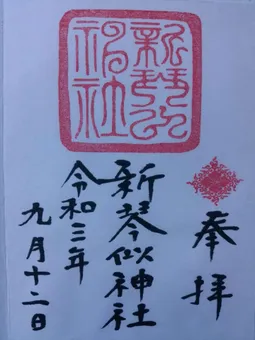 奉拝
新琴似神社
令和三年
九月十二日
新琴似
神社